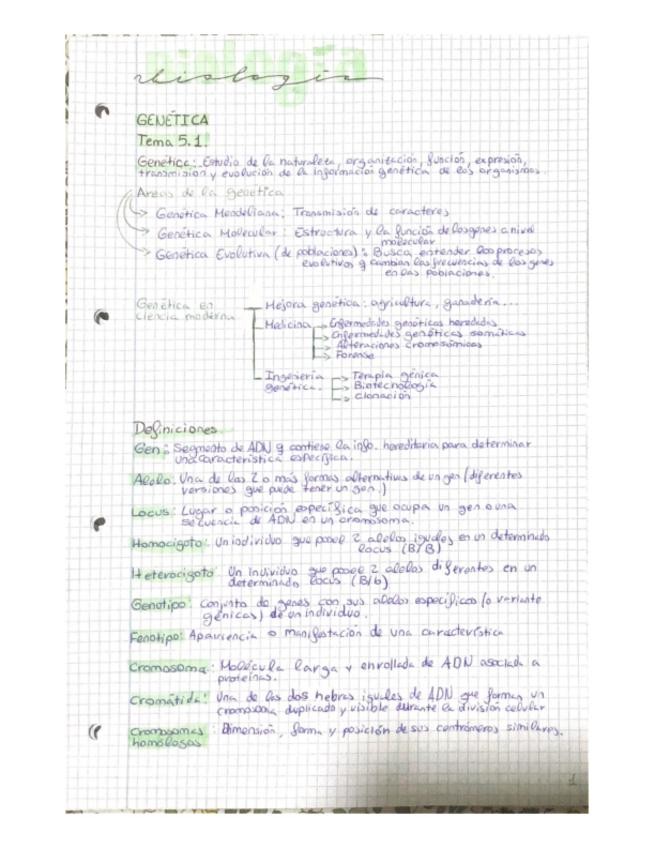 biología
biología
GENÉTICA
Tema 5.1.
Genética: Estudio de la naturaleza, organización, función, expresión,
transmisión y evolución de la información genética de los organismos.
Áreas de la genética
Genética Mendeliana: Transmisión de caracteres
Genética Molecular: Estructura y la función de los genes a nivel
molecular
Genética Evolutiva (de poblaciones): Busca entender los procesos
evolutivos q cambian las frecuencias de los genes
en las poblaciones.
Genética en
ciencia moderna
Mejora genética: agricultura, ganadería...
Medicina
Enfermedades genéticas heredadas
Enfermedades genéticas somáticas
Alteraciones cromosómicas
Forense
Ingeniería
genética.
Terapia génica
Biotecnología
Clonación
Definiciones
Gen: Segmento de ADN q contiene la info. hereditaria para determinar
una característica específica.
Alelo: Una de las 2 o más formas alternativas de un gen (diferentes
versiones que puede tener un gen.)
Locus: Lugar o posición específica que ocupa un gen o una
secuencia de ADN en un cromosoma.
Homocigoto: Un individuo que posee 2 alelos iguales en un determinado
locus (B/B)
Heterocigoto: Un individuo que posee 2 alelos diferentes en un
determinado locus (B/b)
Genotipo: conjunto de genes con sus alelos específicos (o variante
génicas) de un individuo.
Fenotipo: Apariencia o manifestación de una característica
Cromosoma: Molécula larga y enrollada de ADN asociada a
proteínas.
Cromátida: Una de las dos hebras iguales de ADN que forman un
cromosoma duplicado y visible durante la división celular
Cromosomas: Dimensión, forma y posición de sus centrómeros similares.
homólogos
1